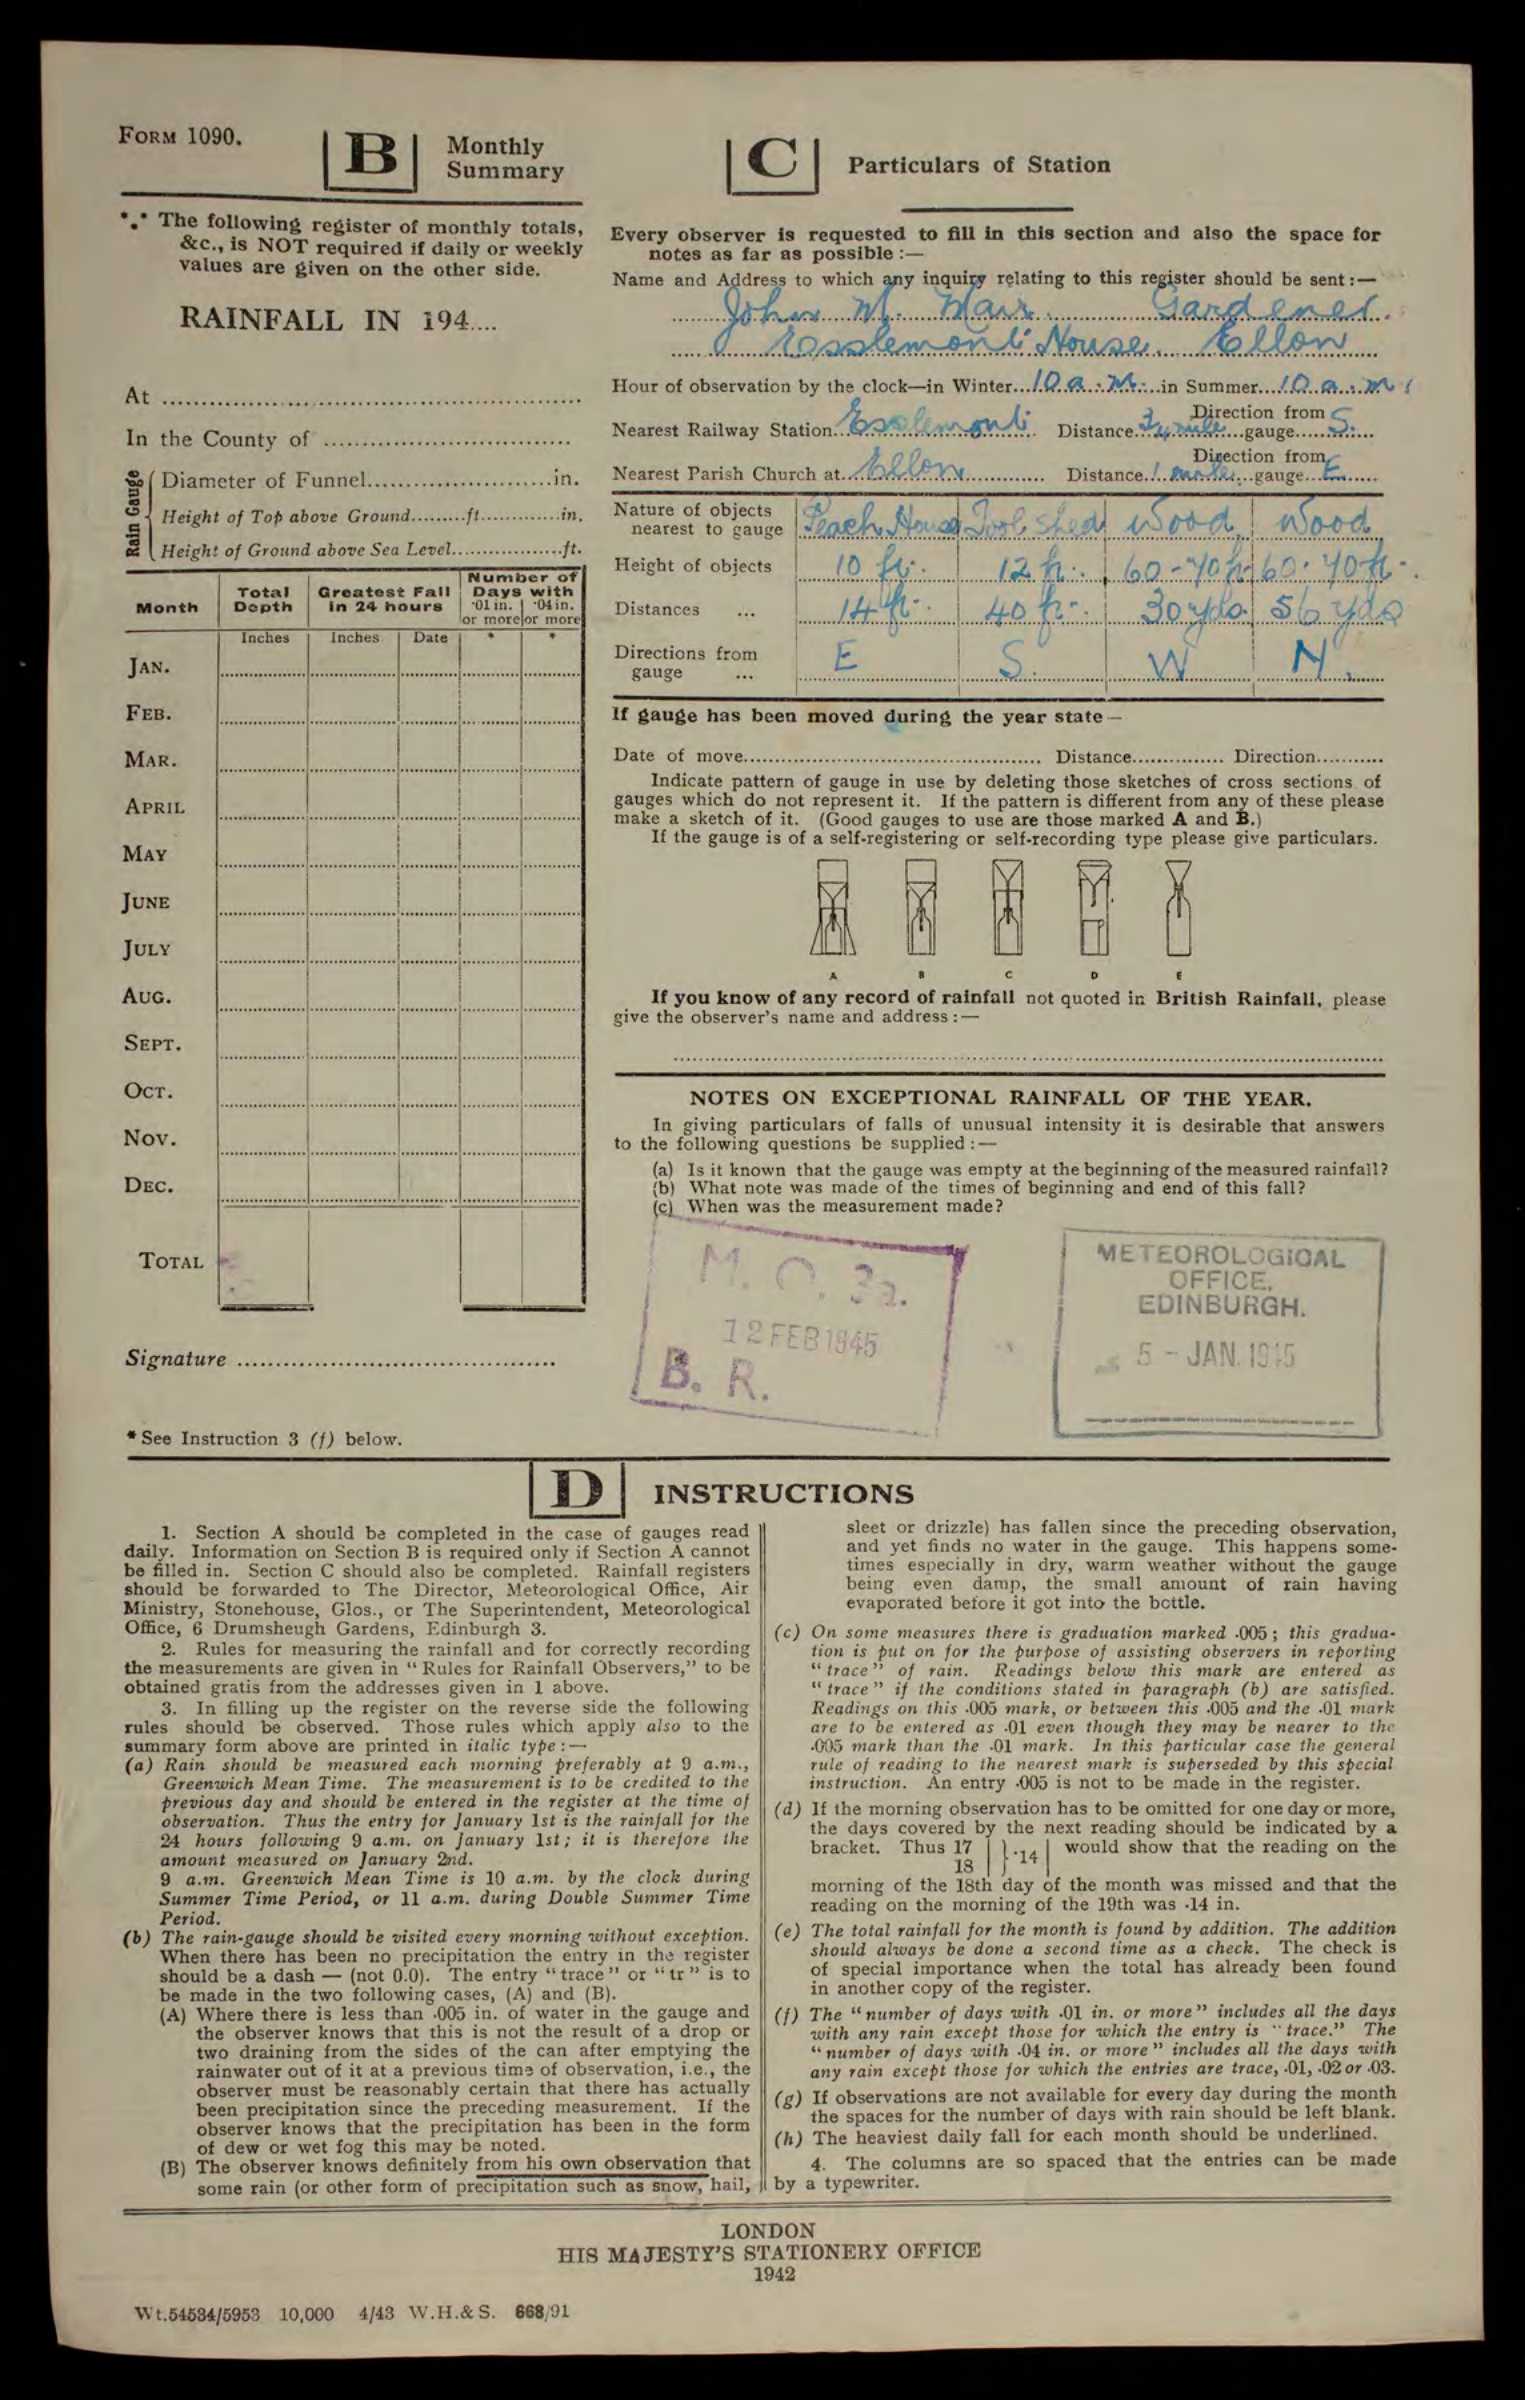 FORM 1090.
B
Monthly
Summary
*.* The following register of monthly totals,
&c., is NOT required if daily or weekly
values are given on the other side.
RAINFALL IN 194....
At
In the County of
Rain Gauge
Diameter of Funnel in.
Height of Top above Ground ft. in.
Height of Ground above Sea Level ft.
Month
Total Depth
Greatest Fall in 24 hours
Number of Days with
·01 in. or more
·04 in. or more
Inches Inches Date * *
JAN.
FEB.
MAR.
APRIL
MAY
JUNE
JULY
AUG.
SEPT.
OCT.
NOV.
DEC.
TOTAL
Signature
* See Instruction 3 (f) below.
C
Particulars of Station
Every observer is requested to fill in this section and also the space for
notes as far as possible :—
Name and Address to which any inquiry relating to this register should be sent :—
John M. Mair. Gardener.
Esslemont House Ellon
Hour of observation by the clock—in Winter 10 a.m. in Summer 10 a.m.
Nearest Railway Station Esslemont Distance 3/4 mile Direction from gauge S.
Nearest Parish Church at Ellon Distance 1 mile Direction from gauge E
Nature of objects nearest to gauge Peach House Tool Shed Wood Wood
Height of objects 10 ft. 12 ft. 60-70 ft 60-70 ft.
Distances ... 14 ft. 40 ft. 30 yds. 56 yds
Directions from gauge ... E S. W N.
If gauge has been moved during the year state—
Date of move Distance Direction
Indicate pattern of gauge in use by deleting those sketches of cross sections of
gauges which do not represent it. If the pattern is different from any of these please
make a sketch of it. (Good gauges to use are those marked A and B.)
If the gauge is of a self-registering or self-recording type please give particulars.
A B C D E
If you know of any record of rainfall not quoted in British Rainfall, please
give the observer's name and address :—
NOTES ON EXCEPTIONAL RAINFALL OF THE YEAR.
In giving particulars of falls of unusual intensity it is desirable that answers
to the following questions be supplied :—
(a) Is it known that the gauge was empty at the beginning of the measured rainfall?
(b) What note was made of the times of beginning and end of this fall?
(c) When was the measurement made?
M. O. 3a.
12 FEB 1945
B. R.
METEOROLOGICAL
OFFICE,
EDINBURGH.
5 - JAN. 1945
D
INSTRUCTIONS
1. Section A should be completed in the case of gauges read
daily. Information on Section B is required only if Section A cannot
be filled in. Section C should also be completed. Rainfall registers
should be forwarded to The Director, Meteorological Office, Air
Ministry, Stonehouse, Glos., or The Superintendent, Meteorological
Office, 6 Drumsheugh Gardens, Edinburgh 3.
2. Rules for measuring the rainfall and for correctly recording
the measurements are given in “ Rules for Rainfall Observers,” to be
obtained gratis from the addresses given in 1 above.
3. In filling up the register on the reverse side the following
rules should be observed. Those rules which apply also to the
summary form above are printed in italic type :—
(a) Rain should be measured each morning preferably at 9 a.m.,
Greenwich Mean Time. The measurement is to be credited to the
previous day and should be entered in the register at the time of
observation. Thus the entry for January 1st is the rainfall for the
24 hours following 9 a.m. on January 1st; it is therefore the
amount measured on January 2nd.
9 a.m. Greenwich Mean Time is 10 a.m. by the clock during
Summer Time Period, or 11 a.m. during Double Summer Time
Period.
(b) The rain-gauge should be visited every morning without exception.
When there has been no precipitation the entry in the register
should be a dash — (not 0.0). The entry “ trace ” or “ tr ” is to
be made in the two following cases, (A) and (B).
(A) Where there is less than .005 in. of water in the gauge and
the observer knows that this is not the result of a drop or
two draining from the sides of the can after emptying the
rainwater out of it at a previous time of observation, i.e., the
observer must be reasonably certain that there has actually
been precipitation since the preceding measurement. If the
observer knows that the precipitation has been in the form
of dew or wet fog this may be noted.
(B) The observer knows definitely from his own observation that
some rain (or other form of precipitation such as snow, hail,
sleet or drizzle) has fallen since the preceding observation,
and yet finds no water in the gauge. This happens some-
times especially in dry, warm weather without the gauge
being even damp, the small amount of rain having
evaporated before it got into the bottle.
(c) On some measures there is graduation marked .005 ; this gradua-
tion is put on for the purpose of assisting observers in reporting
“ trace ” of rain. Readings below this mark are entered as
“ trace ” if the conditions stated in paragraph (b) are satisfied.
Readings on this .005 mark, or between this .005 and the .01 mark
are to be entered as .01 even though they may be nearer to the
.005 mark than the .01 mark. In this particular case the general
rule of reading to the nearest mark is superseded by this special
instruction. An entry .005 is not to be made in the register.
(d) If the morning observation has to be omitted for one day or more,
the days covered by the next reading should be indicated by a
bracket. Thus 17 18 } ·14 would show that the reading on the
morning of the 18th day of the month was missed and that the
reading on the morning of the 19th was .14 in.
(e) The total rainfall for the month is found by addition. The addition
should always be done a second time as a check. The check is
of special importance when the total has already been found
in another copy of the register.
(f) The “ number of days with .01 in. or more ” includes all the days
with any rain except those for which the entry is “ trace.” The
“ number of days with .04 in. or more ” includes all the days with
any rain except those for which the entries are trace, .01, .02 or .03.
(g) If observations are not available for every day during the month
the spaces for the number of days with rain should be left blank.
(h) The heaviest daily fall for each month should be underlined.
4. The columns are so spaced that the entries can be made
by a typewriter.
LONDON
HIS MAJESTY'S STATIONERY OFFICE
1942
Wt.54534/5953 10,000 4/43 W.H.& S. 668/91